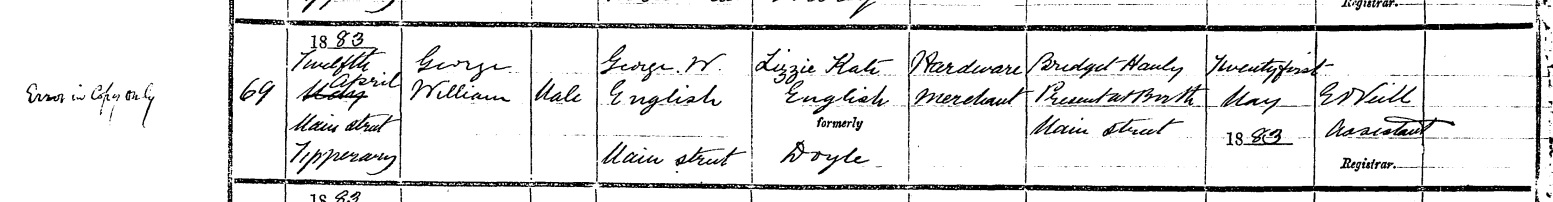 Registrar.
Error in Copy only
69
1883
Twelfth
May April
Main street
Tipperary
George
William
Male
George W.
English
Main street
Lizzie Kate
English
formerly
Doyle
Hardware
Merchant
Bridget Hanly
Present at Birth
Main street
Twentyfirst
May
1883
E O'Neill
Assistant
Registrar.
1883